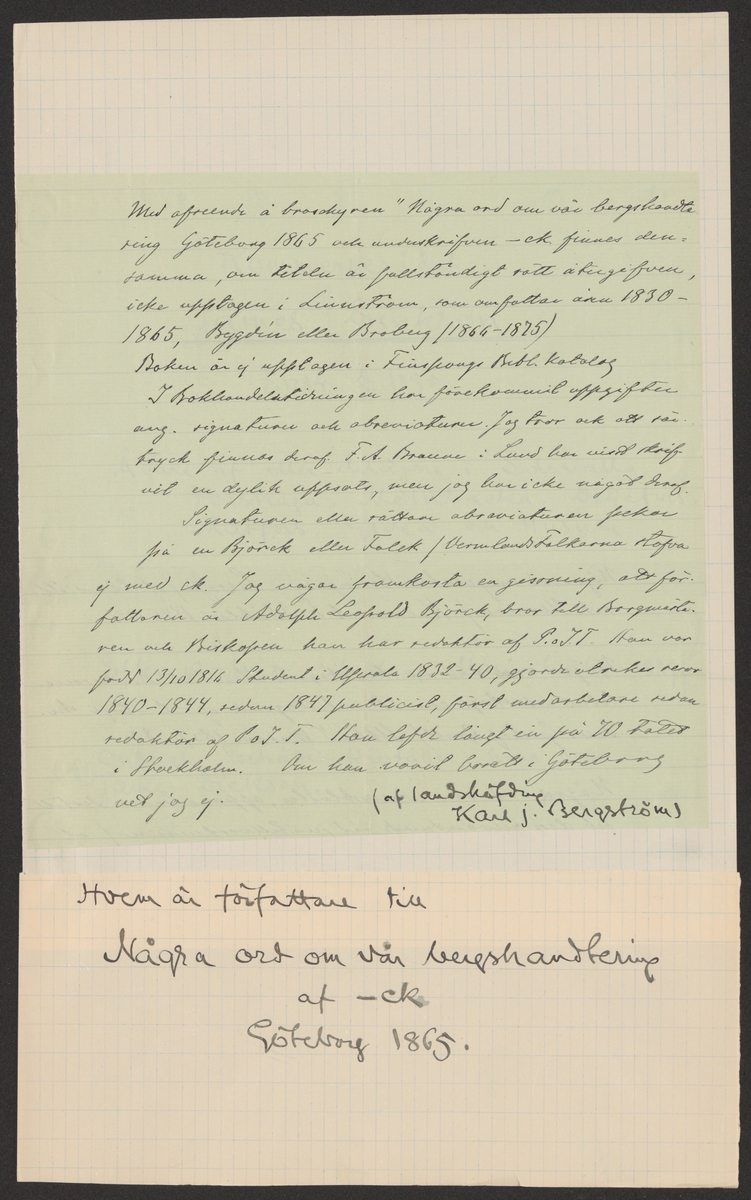 Med afseende å broschyren "Några ord om vår bergshandte
ring Göteborg 1865 och underskrifven -ck finnes den=
samma, om titeln är fullständigt rätt återgifven,
icke upptagen i Linnström, som omfattar åren 1830-
1865, Bygdén eller Broberg (1864-1875)
Boken är ej upptagen i Finspongs Bibl. katalog
I Bokhandelstidningen har förekommit uppgifter
ang. signaturer och abreviaturer. Jag tror ock att sär-
tryck finnas deraf. F. A. Braune i Lund har visst skrif-
vit en dylik uppsats, men jag har icke något deraf.
Signaturen eller rättare abreviaturen pekar
på en Björck eller Falck (Vermlands Falkarna stafva
ej med ck. Jag vågar framkasta en gissning, att för-
fattaren är Adolph Leopold Björck, bror till Borgmästa-
ren och Biskopen han har redaktör af P.o.I.T. Han var
född 13/10 1816 Student i Upsala 1832-40, gjorde utrikes resor
1840-1844, sedan 1847 publicist, först medarbetare sedan
redaktör af P.o.I.T. Han lefde långt in på 70 talet
i Stockholm. Om han varit bosatt i Göteborg
vet jag ej.
(af landshöfding
Karl J. Bergström)
Hvem är författare till
Några ord om vår bergshandtering
af -ck
Göteborg 1865.